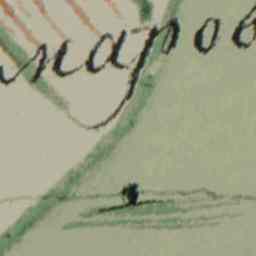 маров